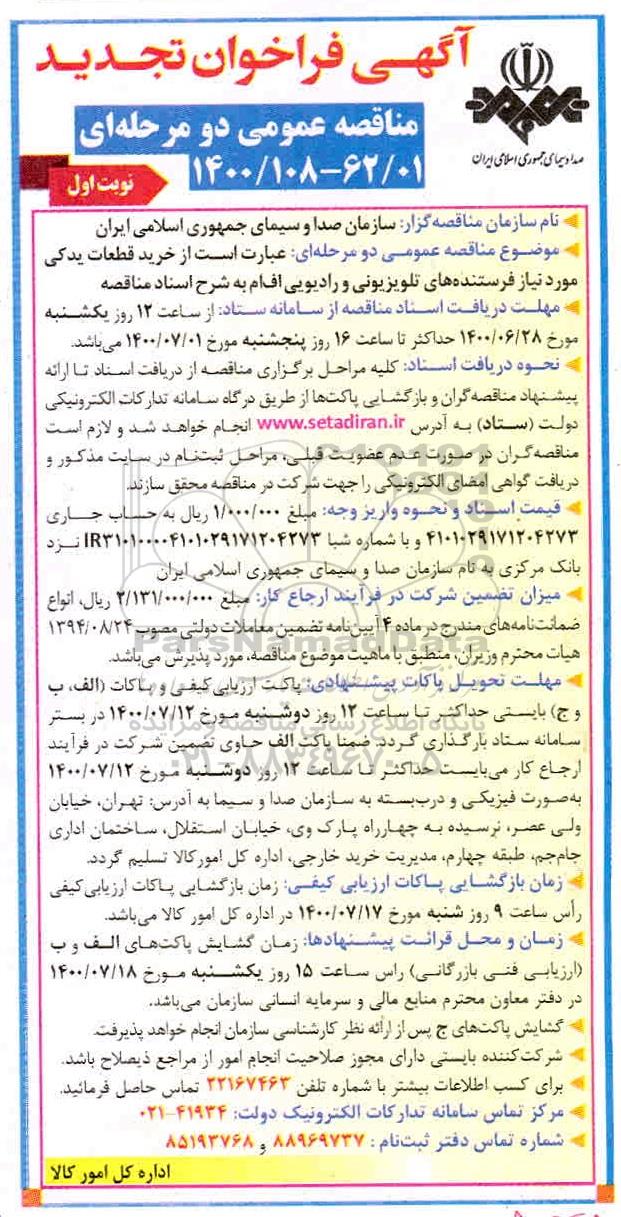 آگهی فراخوان تجدید
مناقصه عمومی دو مرحله‌ای
۱۴۰۰/۱۰۸-۶۲/۰۱
نوبت اول
صدا و سیمای جمهوری اسلامی ایران
نام سازمان مناقصه‌گزار: سازمان صدا و سیمای جمهوری اسلامی ایران
موضوع مناقصه عمومی دو مرحله‌ای: عبارت است از خرید قطعات یدکی
مورد نیاز فرستنده‌های تلویزیونی و رادیویی اف‌ام به شرح اسناد مناقصه
مهلت دریافت اسناد مناقصه از سامانه ستاد: از ساعت ۱۲ روز یکشنبه
مورخ ۱۴۰۰/۰۶/۲۸ حداکثر تا ساعت ۱۶ روز پنجشنبه مورخ ۱۴۰۰/۰۷/۰۱ می‌باشد.
نحوه دریافت اسناد: کلیه مراحل برگزاری مناقصه از دریافت اسناد تا ارائه
پیشنهاد مناقصه‌گران و بازگشایی پاکت‌ها از طریق درگاه سامانه تدارکات الکترونیکی
دولت (ستاد) به آدرس www.setadiran.ir انجام خواهد شد و لازم است
مناقصه‌گران در صورت عدم عضویت قبلی، مراحل ثبت‌نام در سایت مذکور و
دریافت گواهی امضای الکترونیکی را جهت شرکت در مناقصه محقق سازند.
قیمت اسناد و نحوه واریز وجه: مبلغ ۱/۰۰۰/۰۰۰ ریال به حساب جاری
۴۱۰۱۰۲۹۱۷۱۲۰۴۲۷۳ و با شماره شبا IR۳۱۰۱۰۰۰۰۴۱۰۱۰۲۹۱۷۱۲۰۴۲۷۳ نزد
بانک مرکزی به نام سازمان صدا و سیمای جمهوری اسلامی ایران
میزان تضمین شرکت در فرآیند ارجاع کار: مبلغ ۲/۱۳۱/۰۰۰/۰۰۰ ریال، انواع
ضمانت‌نامه‌های مندرج در ماده ۴ آیین‌نامه تضمین معاملات دولتی مصوب ۱۳۹۴/۰۸/۲۴
هیات محترم وزیران، منطبق با ماهیت موضوع مناقصه، مورد پذیرش می‌باشد.
مهلت تحویل پاکات پیشنهادی: پاکت ارزیابی کیفی و پاکات (الف، ب
و ج) بایستی حداکثر تا ساعت ۱۲ روز دوشنبه مورخ ۱۴۰۰/۰۷/۱۲ در بستر
سامانه ستاد بارگذاری گردد. ضمنا پاکت الف حاوی تضمین شرکت در فرآیند
ارجاع کار می‌بایست حداکثر تا ساعت ۱۲ روز دوشنبه مورخ ۱۴۰۰/۰۷/۱۲
به‌صورت فیزیکی و درب‌بسته به سازمان صدا و سیما به آدرس: تهران، خیابان
ولی عصر، نرسیده به چهارراه پارک وی، خیابان استقلال، ساختمان اداری
جام‌جم، طبقه چهارم، مدیریت خرید خارجی، اداره کل امور کالا تسلیم گردد.
زمان بازگشایی پاکات ارزیابی کیفی: زمان بازگشایی پاکات ارزیابی کیفی
رأس ساعت ۹ روز شنبه مورخ ۱۴۰۰/۰۷/۱۷ در اداره کل امور کالا می‌باشد.
زمان و محل قرائت پیشنهادها: زمان گشایش پاکت‌های الف و ب
(ارزیابی فنی بازرگانی) راس ساعت ۱۵ روز یکشنبه مورخ ۱۴۰۰/۰۷/۱۸
در دفتر معاون محترم منابع مالی و سرمایه انسانی سازمان می‌باشد.
گشایش پاکت‌های ج پس از ارائه نظر کارشناسی سازمان انجام خواهد پذیرفت.
شرکت‌کننده بایستی دارای مجوز صلاحیت انجام امور از مراجع ذیصلاح باشد.
برای کسب اطلاعات بیشتر با شماره تلفن ۲۲۱۶۷۴۶۳ تماس حاصل فرمائید.
مرکز تماس سامانه تدارکات الکترونیک دولت: ۴۱۹۳۴-۰۲۱
شماره تماس دفتر ثبت‌نام : ۸۸۹۶۹۷۳۷ و ۸۵۱۹۳۷۶۸
اداره کل امور کالا
ParsNamadData
پایگاه اطلاع رسانی مناقصه و مزایده
۰۲۱-۸۸۳۴۹۶۷۰-۵